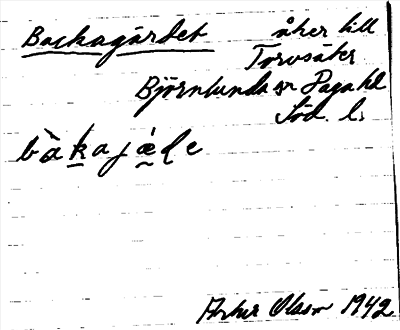 Backagärdet åker till
Torvsäter
Björnlunda sn Daga hd
Söd. l.
bàkajæ̀de
Arthur Olson 1942